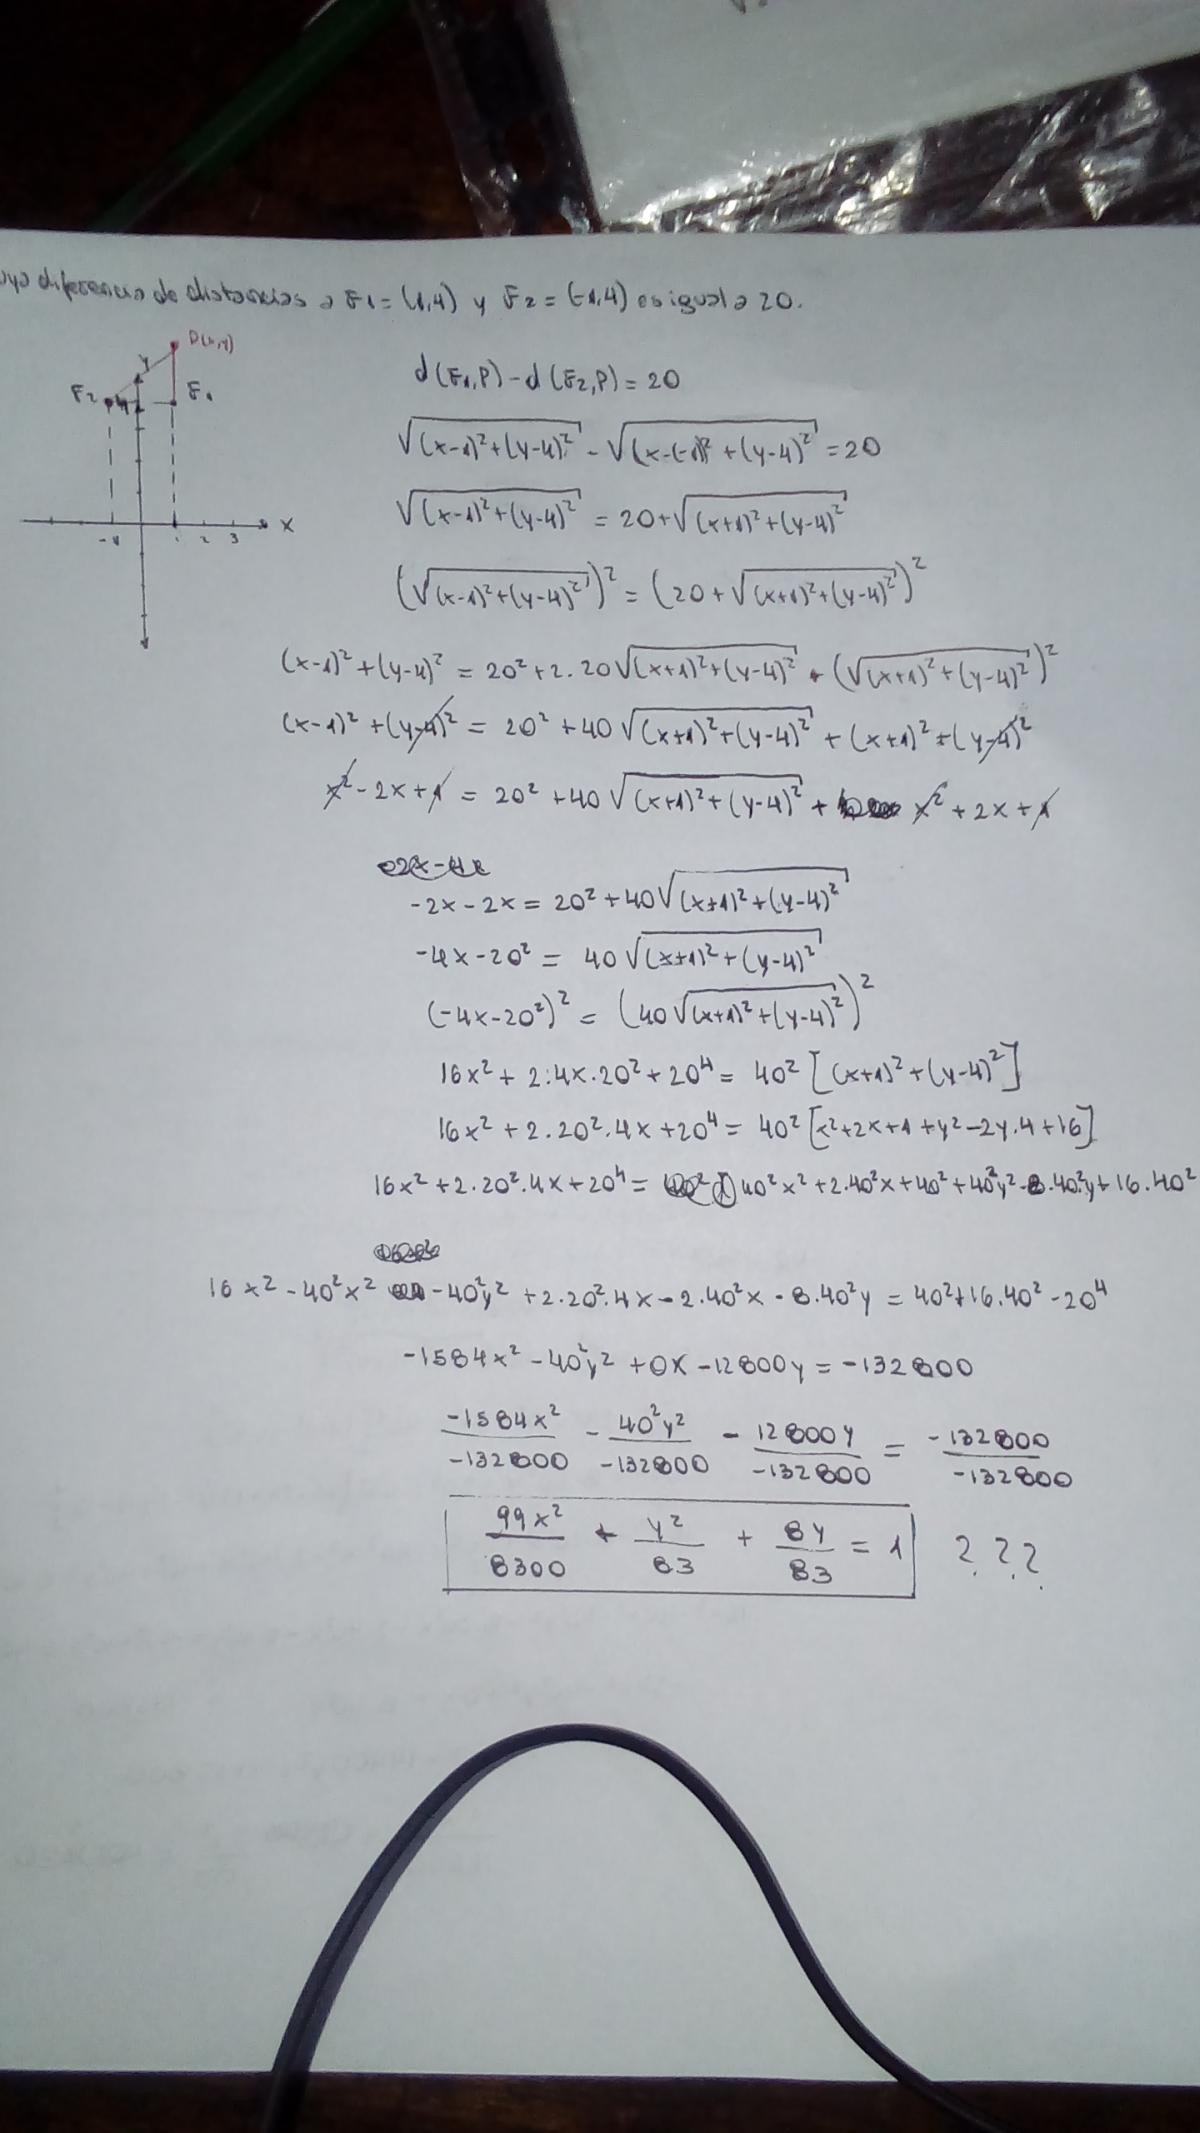 diferencia de distancias a F1=(1,4) y F2=(-1,4) es igual a 20.
P(x,y)
y
F2
4
F1
x
-1 1 2 3
d(F1,P)-d(F2,P)=20
√((x-1)²+(y-4)²) - √((x-(-1))²+(y-4)²) = 20
√((x-1)²+(y-4)²) = 20+√((x+1)²+(y-4)²)
(√((x-1)²+(y-4)²))² = (20+√((x+1)²+(y-4)²))²
(x-1)²+(y-4)² = 20²+2.20√((x+1)²+(y-4)²) + (√((x+1)²+(y-4)²))²
(x-1)²+(y-4)² = 20²+40√((x+1)²+(y-4)²) + (x+1)²+(y-4)²
x²-2x+1 = 20²+40√((x+1)²+(y-4)²) + x²+2x+1
-2x-2x = 20²+40√((x+1)²+(y-4)²)
-4x-20² = 40√((x+1)²+(y-4)²)
(-4x-20²)² = (40√((x+1)²+(y-4)²))²
16x²+2.4x.20²+20⁴ = 40² [(x+1)²+(y-4)²]
16x²+2.20².4x+20⁴ = 40² [x²+2x+1+y²-2y.4+16]
16x²+2.20².4x+20⁴ = 40²x²+2.40²x+40²+40²y²-8.40²y+16.40²
16x²-40²x² -40²y²+2.20².4x-2.40²x-8.40²y = 40²+16.40²-20⁴
-1584x²-40²y²+0x-12800y = -132800
-1584x²/-132800 - 40²y²/-132800 - 12800y/-132800 = -132800/-132800
99x²/8300 + y²/83 + 8y/83 = 1 ???